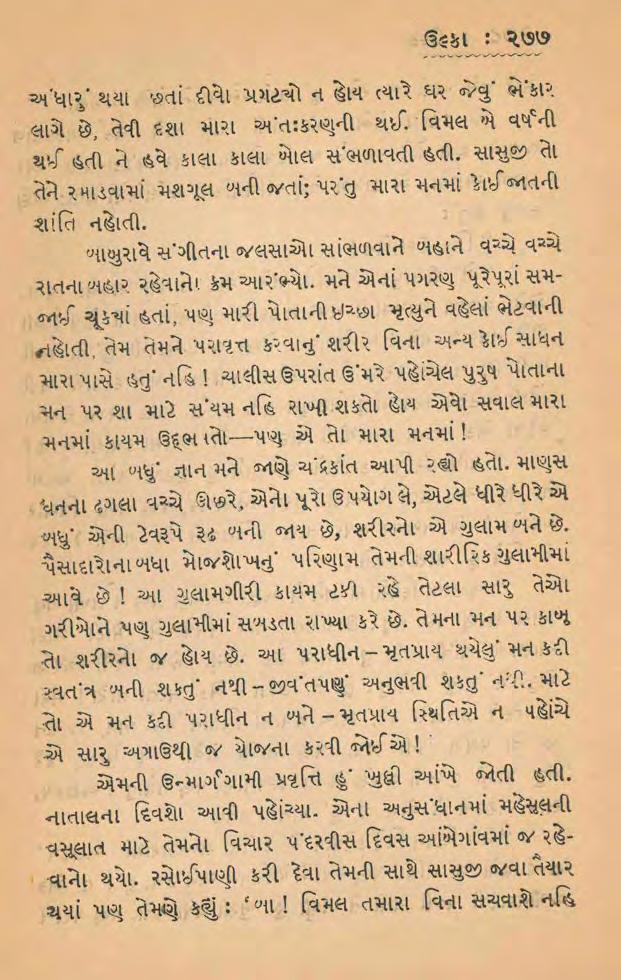 ઉલ્કા : ૨૭૭
અંધારું થયા છતાં દીવો પ્રગટયો ન હોય ત્યારે ઘર જેવું ભેંકાર
લાગે છે, તેવી દશા મારા અંતઃકરણની થઈ. વિમલ બે વર્ષની
થઈ હતી ને હવે કાલા કાલા બોલ સંભળાવતી હતી. સાસુજી તો
તેને રમાડવામાં મશગૂલ બની જતાં; પરંતુ મારા મનમાં કોઈ જાતની
શાંતિ નહોતી.
બાબુરાવે સંગીતના જલસાઓ સાંભળવાને બહાને વચ્ચે વચ્ચે
રાતના બહાર રહેવાનો ક્રમ આરંભ્યો. મને એનાં પગરણ પૂરેપૂરાં સમ-
જાઈ ચૂક્યાં હતાં, પણ મારી પોતાની ઇચ્છા મૃત્યુને વહેલાં ભેટવાની
નહોતી, તેમ તેમને પરાવૃત્ત કરવાનું શરીર વિના અન્ય કોઈ સાધન
મારા પાસે હતું નહિ ! ચાલીસ ઉપરાંત ઉંમરે પહોંચેલ પુરુષ પોતાના
મન પર શા માટે સંયમ નહિ રાખી શકતો હોય એવો સવાલ મારા
મનમાં કાયમ ઉદ્દભવતો—પણ એ તો મારા મનમાં !
આ બધું જ્ઞાન મને જાણે ચંદ્રકાંત આપી રહ્યો હતો. માણસ
ધનના ઢગલા વચ્ચે ઊછરે, એનો પૂરો ઉપયોગ લે, એટલે ધીરે ધીરે એ
બધું એની ટેવરૂપે રૂઢ બની જાય છે, શરીરનો એ ગુલામ બને છે.
પૈસાદારોના બધા મોજશોખનું પરિણામ તેમની શારીરિક ગુલામીમાં
આવે છે ! આ ગુલામગીરી કાયમ ટકી રહે તેટલા સારુ તેઓ
ગરીબોને પણ ગુલામીમાં સબડતા રાખ્યા કરે છે. તેમના મન પર કાબૂ
તો શરીરનો જ હોય છે. આ પરાધીન – મૃતપ્રાય થયેલું મન કદી
સ્વતંત્ર બની શકતું નથી – જીવંતપણું અનુભવી શકતું નથી. માટે
તો એ મન કદી પરાધીન ન બને – મૃતપ્રાય સ્થિતિએ ન પહોંચે
એ સારુ અગાઉથી જ યોજના કરવી જોઈએ !
એમની ઉન્માર્ગગામી પ્રવૃત્તિ હું ખુલ્લી આંખે જોતી હતી.
નાતાલના દિવશો આવી પહોંચ્યા. એના અનુસંધાનમાં મહેસૂલની
વસૂલાત માટે તેમનો વિચાર પંદરવીસ દિવસ આંબેગાંવમાં જ રહે-
વાનો થયો. રસોઈપાણી કરી દેવા તેમની સાથે સાસુજી જવા તૈયાર
થયાં પણ તેમણે કહ્યું : ‘બા ! વિમલ તમારા વિના સચવાશે નહિ